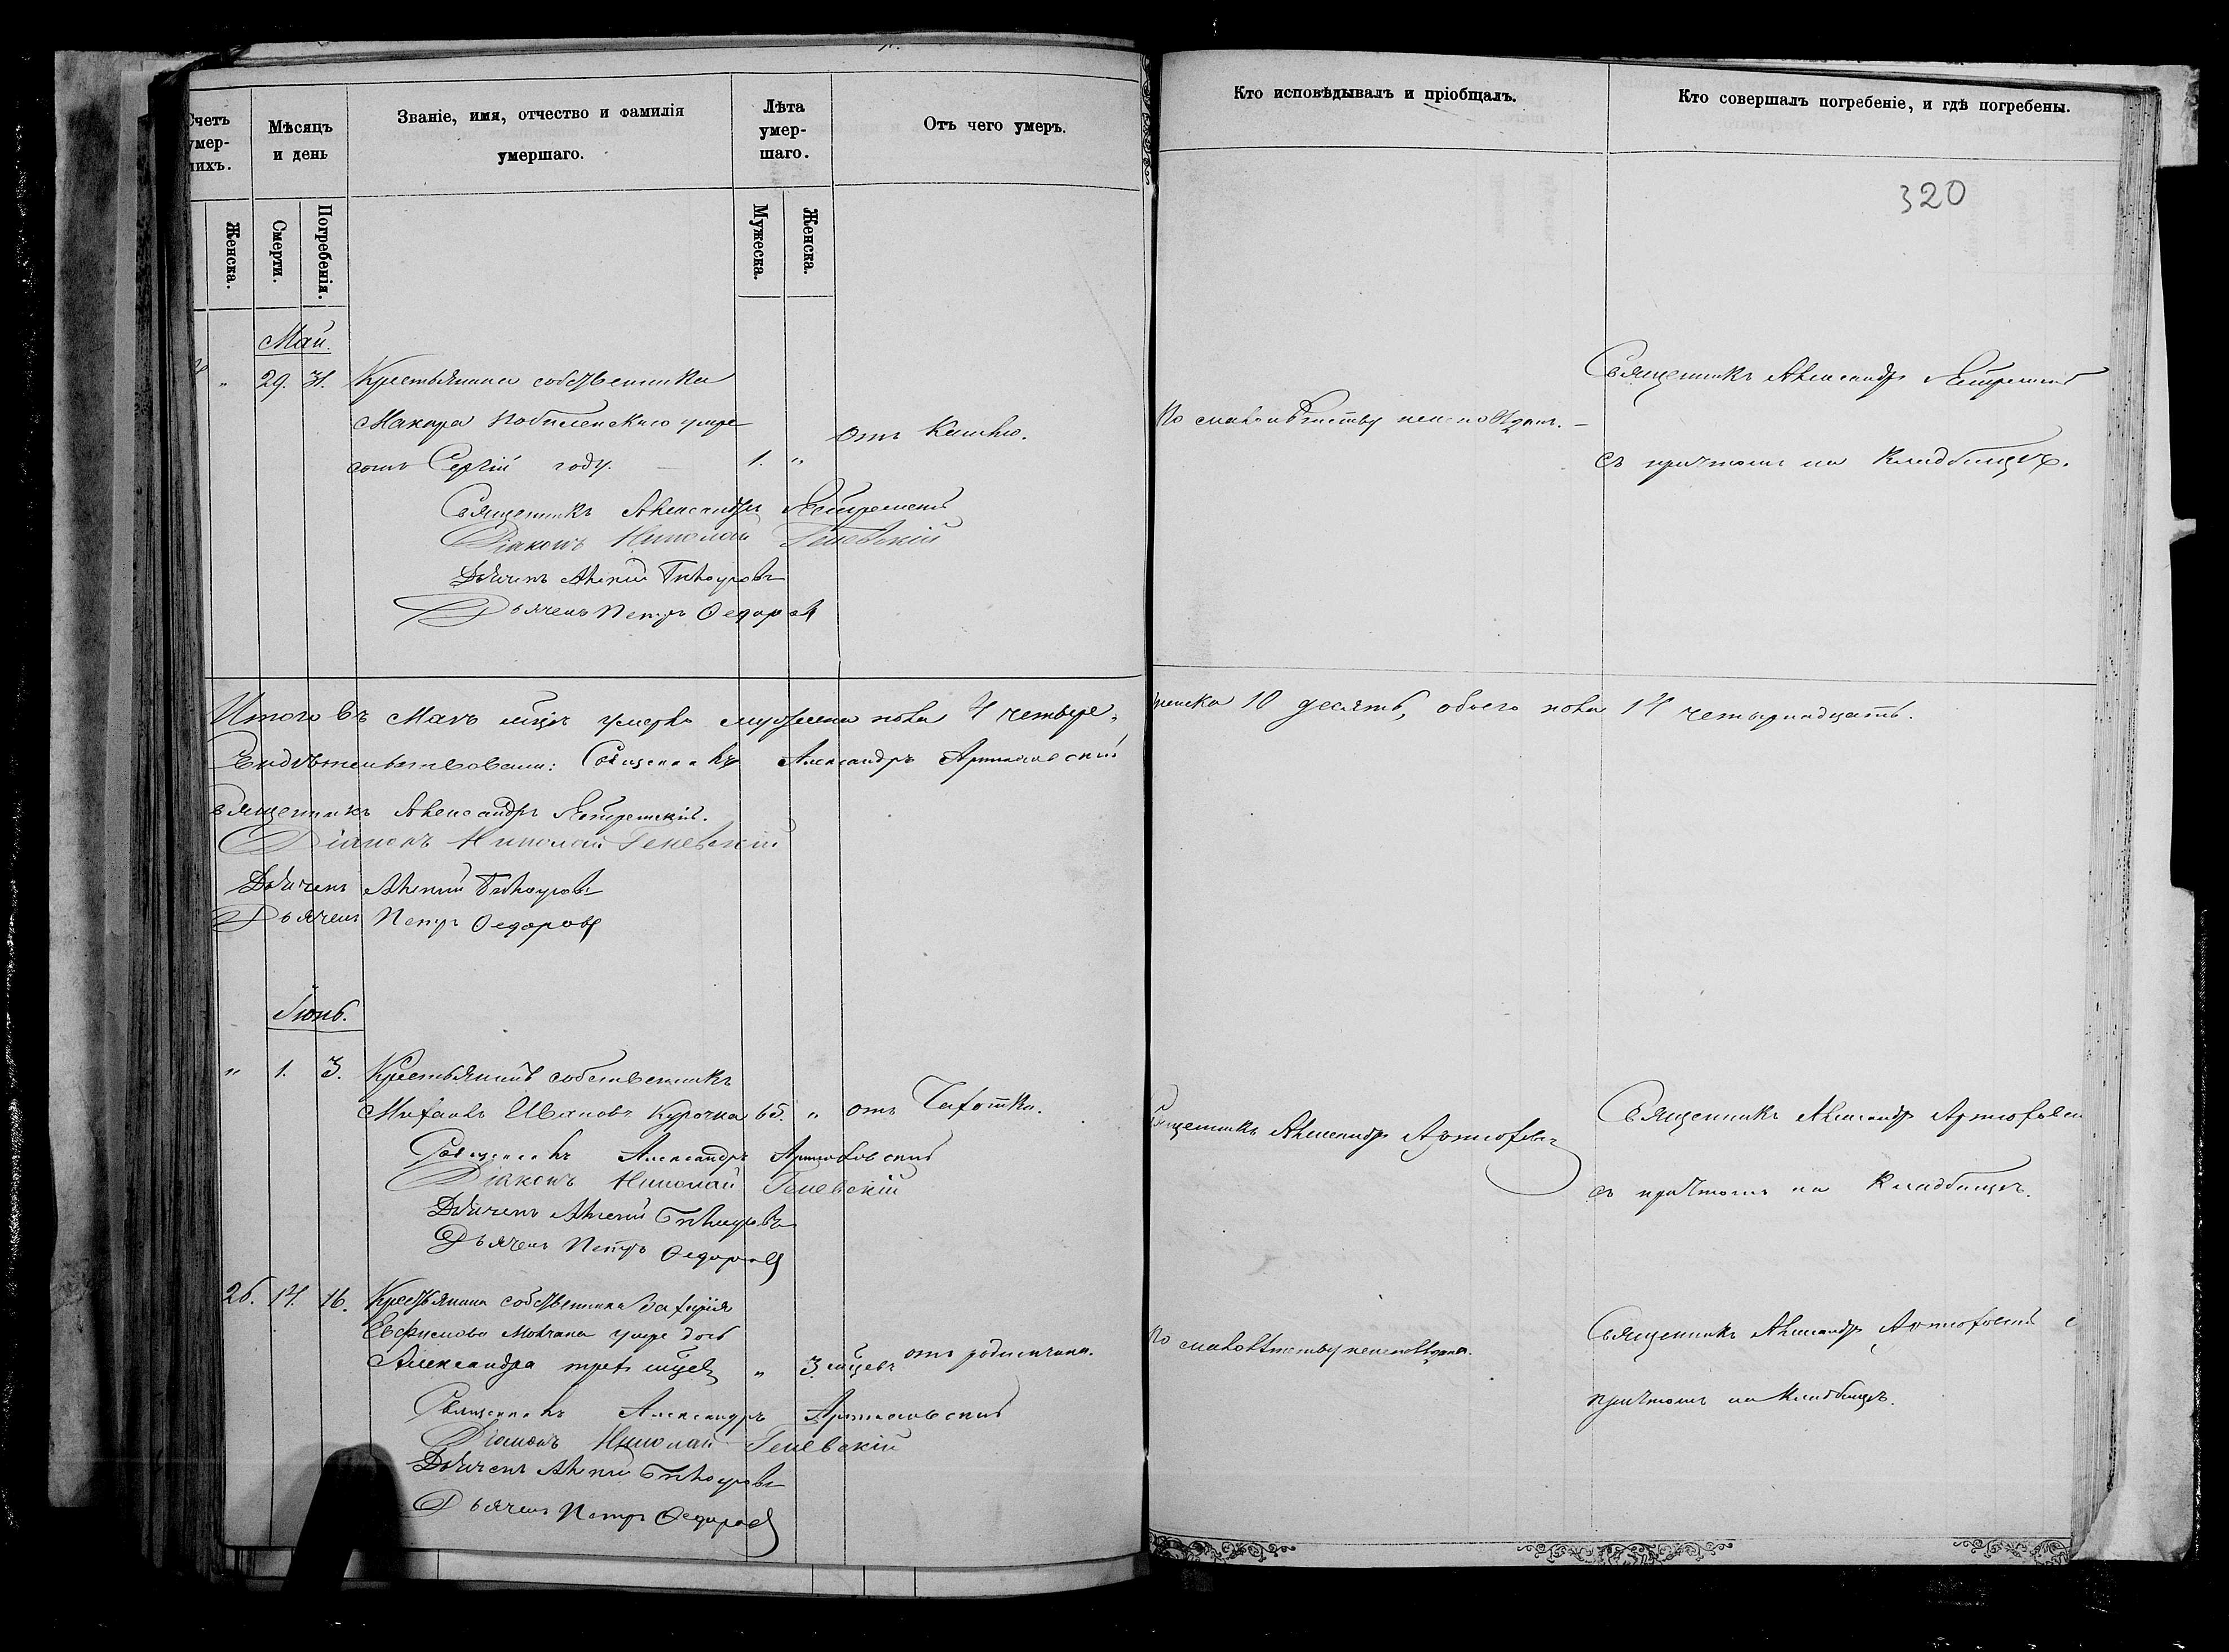 Счетъ умер- шихъ.
Мѣсяцъ и день
Званіе, имя, отчество и фамилія
умершаго.
Лѣта умер- шаго.
Отъ чего умеръ.
Кто исповѣдывалъ и пріобщалъ.
Кто совершалъ погребеніе, и гдѣ погребены.
Женска.
Смерти.
Погребенія.
Мужеска.
Женска.
320
Май.
" 29. 31. Крестьянина собственника
Макара умре
сынъ Сергій году. 1. " отъ Кашлю.
По малолѣтству неисповѣданъ.
Священникъ Александръ
съ причтомъ на кладбищѣ.
Священникъ Александръ
Діаконъ Николай
Дьячекъ
Дьячекъ Петръ Федоровъ
Итого въ Маѣ мцѣ умерло мужеска пола 4 четыре,
женска 10 десять, обоего пола 14 четырнадцать.
Свидѣтельствовали: Священникъ Александръ Артюховскій
Священникъ Александръ
Діаконъ Николай
Дьячекъ
Дьячекъ Петръ Федоровъ
Іюнь.
" 1. 3. Крестьянинъ собственникъ
Михаилъ Ивановъ Курочка 65. " отъ Чахотки.
Священникъ Александръ
Священникъ Александръ
съ причтомъ на кладбищѣ.
Священникъ Александръ Артюховскій
Діаконъ Николай
Дьячекъ
Дьячекъ Петръ Федоровъ
26. 14. 16. Крестьянина собственника Захарія
Евфимова Молчана умре дочь
Александра трехъ мцевъ " 3 мцевъ отъ родимчика.
По малолѣтству неисповѣдана.
Священникъ Александръ Артюховскій с
причтомъ на кладбищѣ.
Священникъ Александръ Артюховскій
Діаконъ Николай
Дьячекъ
Дьячекъ Петръ Федоровъ